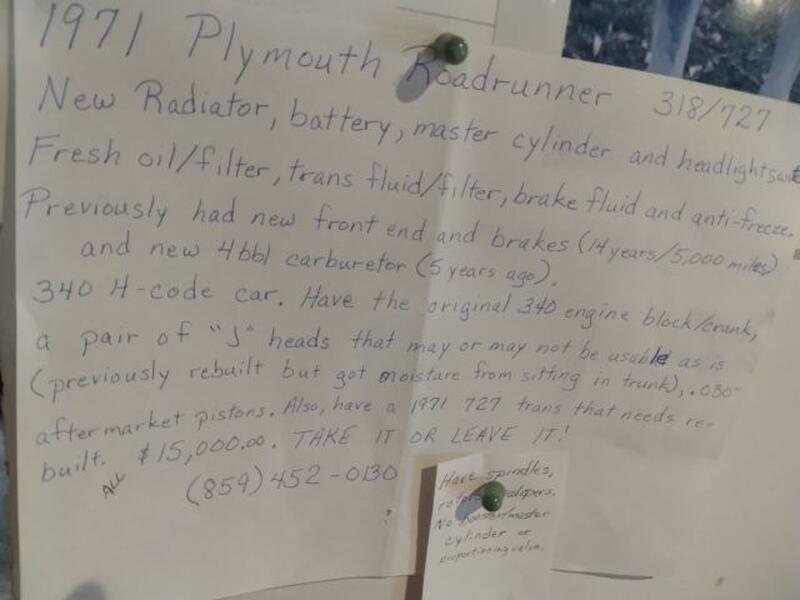 1971 Plymouth Roadrunner 318/727
New Radiator, battery, master cylinder and headlight
Fresh oil/filter, trans fluid/filter, brake fluid and anti-freeze.
Previously had new front end and brakes (14 years/5,000 miles)
and new 4bbl carburetor (5 years ago).
340 H-code car. Have the original 340 engine block/crank,
a pair of "J" heads that may or may not be usable as is
(previously rebuilt but got moisture from sitting in trunk), .030"
aftermarket pistons. Also, have a 1971 727 trans that needs re-
built. $15,000.00. TAKE IT OR LEAVE IT!
ALL
(859) 452-0130
Have spindles,
calipers.
No booster/master
cylinder or
proportioning valve.